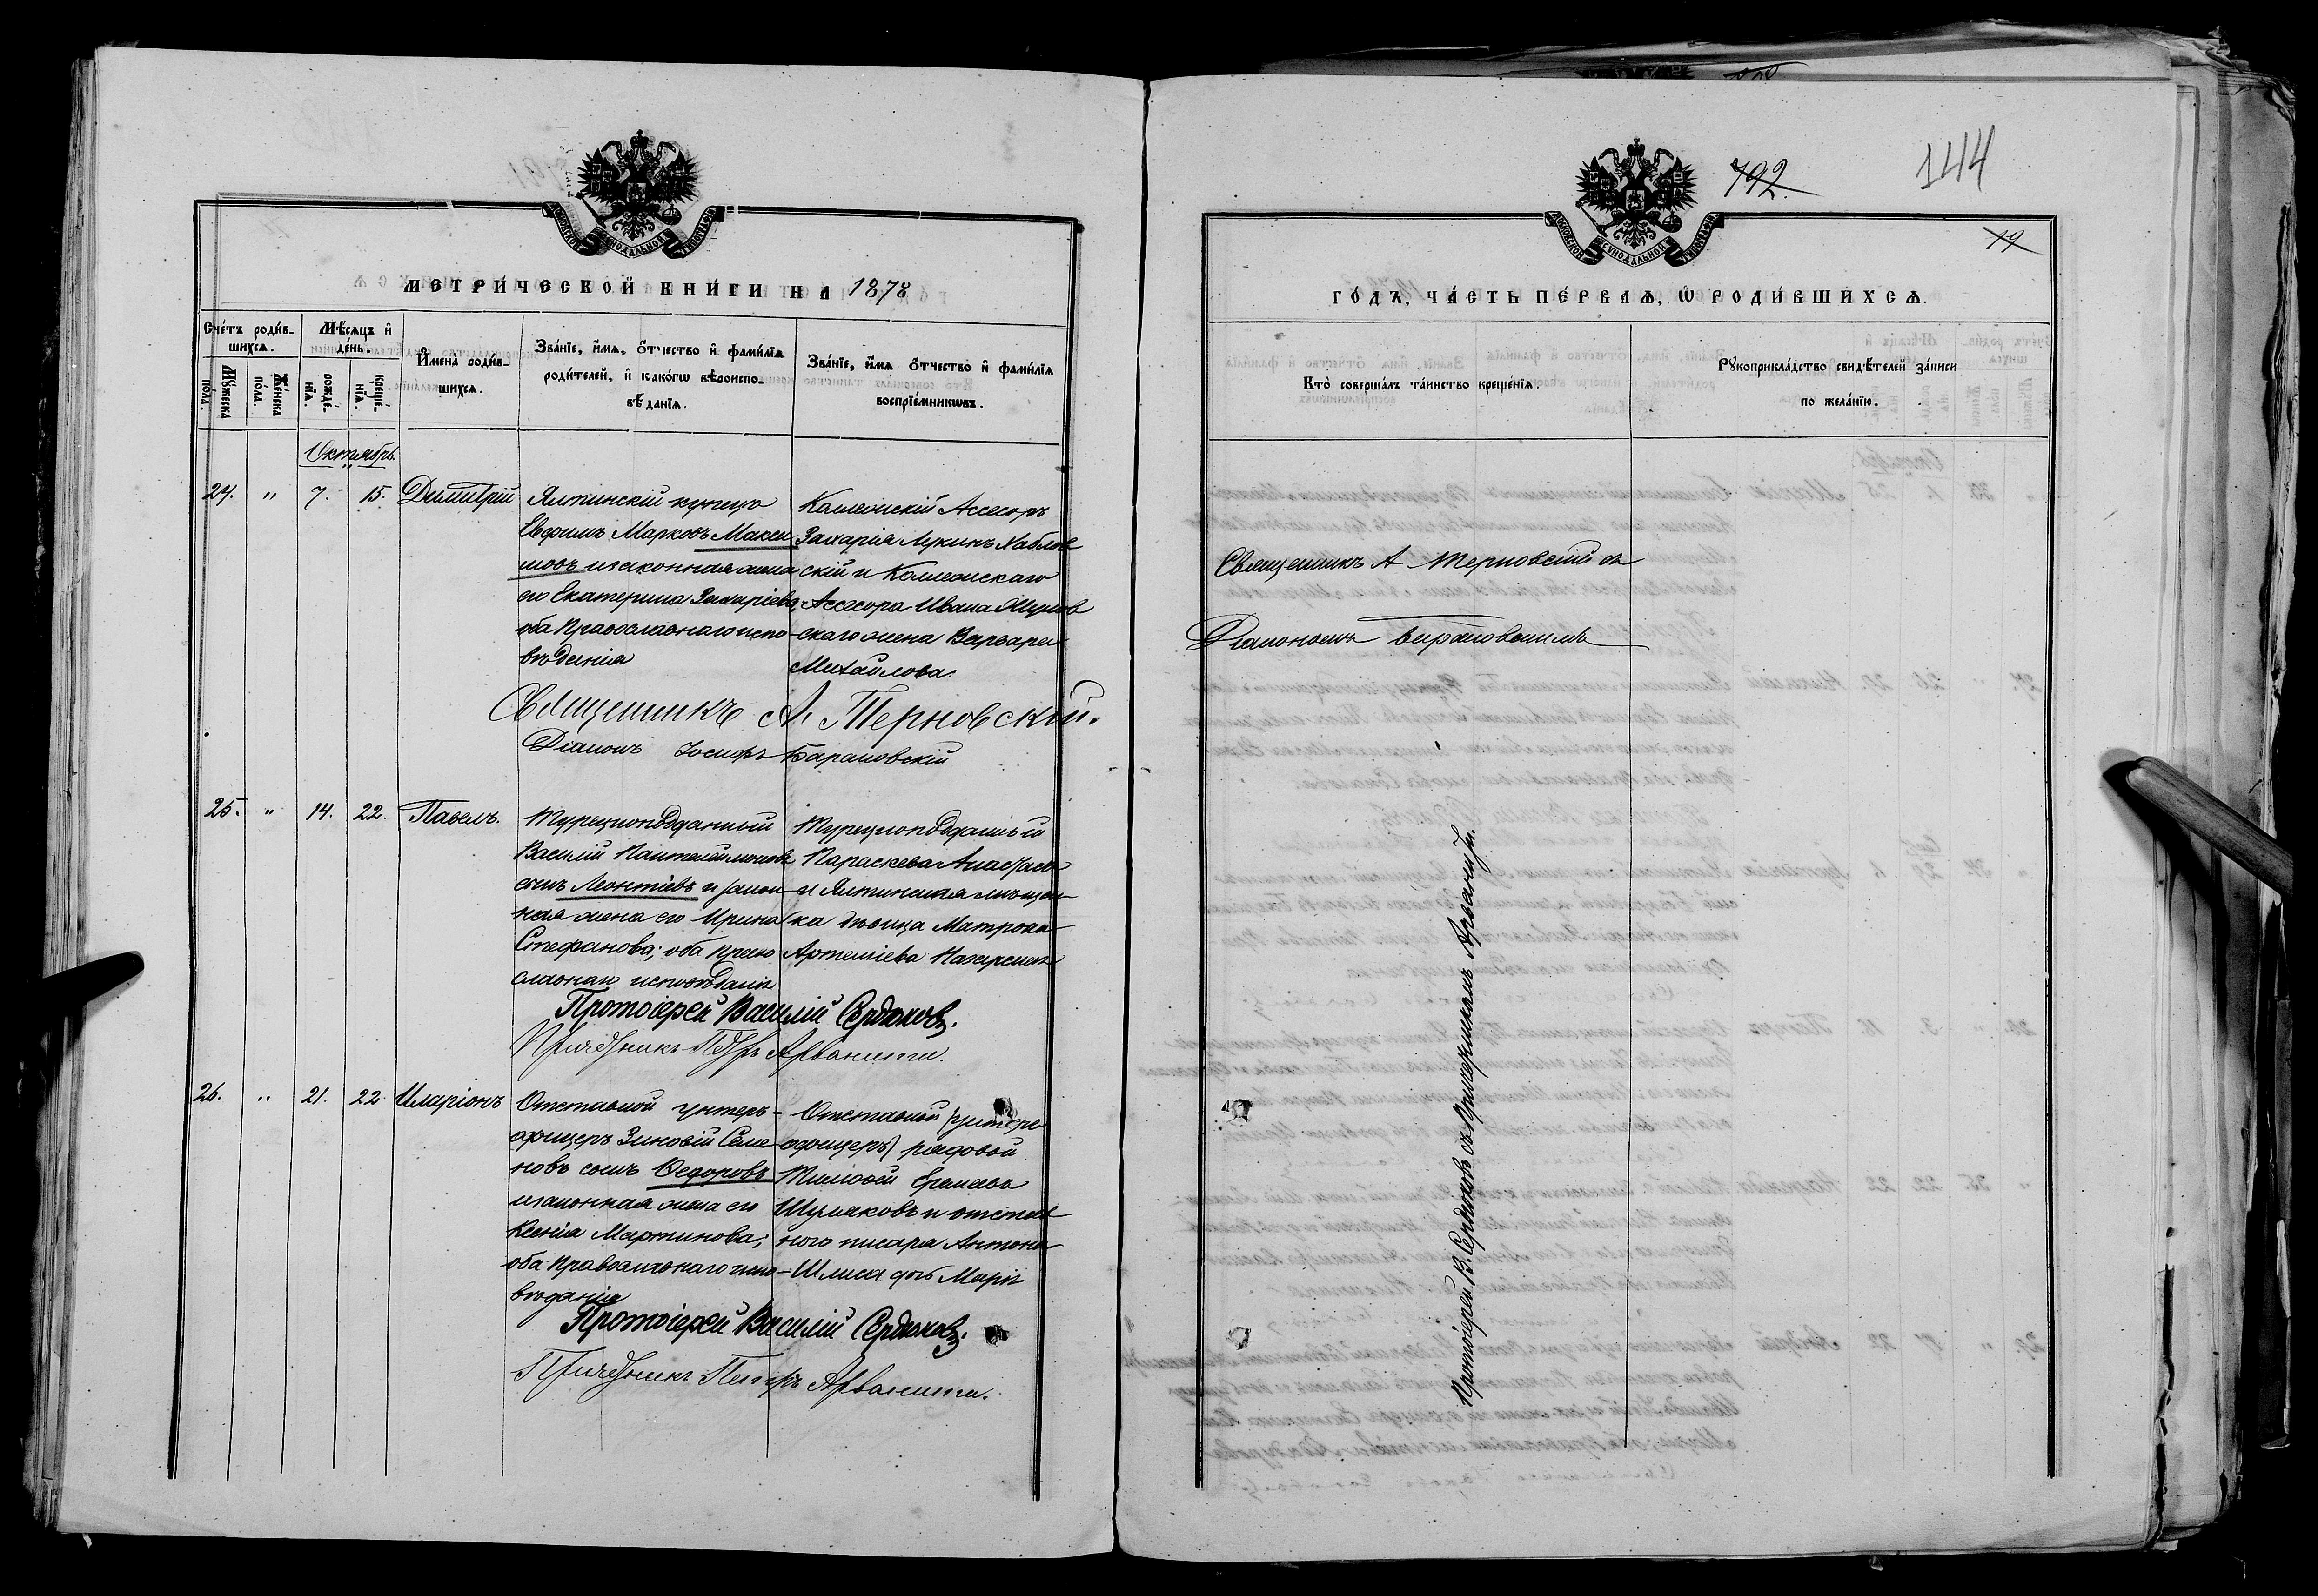 МЕТРИ́ЧЕСКОЙ КНИ́ГИ НА 1878
Сче́тъ роди́в-
шихсѧ.
Мѣ́сѧцъ и҆
де́нь.
Му́жеска
по́ла.
Же́нска
по́ла.
рожде́-
нїѧ.
креще́-
нїѧ.
И҆мена̀ роди́в-
шихсѧ.
Зва́нїе, и҆́мѧ, ѻ҆́тчество и҆ фами́лїѧ
роди́телей, и҆ како́гѡ вѣроиспо-
вѣ́данїѧ.
Зва́нїе, и҆́мѧ ѻ҆́тчество и҆ фами́лїѧ
воспрїе́мникѡвъ.
Октябрь.
24. " 7. 15. Димитрій
Ялтинскій купецъ
Евфимъ Марковъ Макси
мовъ и законная жена
его Екатерина Захаріева
оба Православнаго испо-
вѣданія
Коллежскій Ассесоръ
Захарія Лукинъ
скій и Коллежскаго
Ассесора Ивана
скаго жена Варвара
Михайлова.
Священникъ А. Терновскій.
Діаконъ Іосифъ Барановскій
25. " 14. 22. Павелъ.
Турецкоподданный
Василій Пантелеймоновъ
сынъ Леонтіевъ и закон
ная жена его Ирина
Стефанова; оба право
славнаи исповѣданія
Турецкоподданный
Параскева
и Ялтинская мѣщан
ка дѣвица Матрона
Артеміева
Протоіерей Василій Сердюковъ.
Причетникъ Петръ Арванити.
26. " 21. 22. Иларіонъ
Отставной унтеръ-
офицеръ Зиновій Семе-
новъ сынъ Ѳедоровъ
и законная жена его
Ксенія Мартинова;
оба Православнаго испо-
вѣданія
Отставной (унтеръ
офицеръ) рядовой
Тимофей
Шумаковъ и отстав
ного писаря Антона
дочь Марія
Протоіерей Василій Сердюковъ.
Причетникъ Петръ Арванити.
792.
144
19
ГО́ДЪ, ЧА́СТЬ ПЕ́РВАѦ, Ѡ҆ РОДИ́ВШИХСѦ.
Кто̀ соверша́лъ та́инство креще́нїѧ.
Рꙋкоприкла́дство свидѣ́телей за́писи
по жела́нїю.
Священникъ А Терновскій съ
Діакономъ Барановскимъ
Протоіерей В. Сердюковъ съ Причетникомъ Арванити.